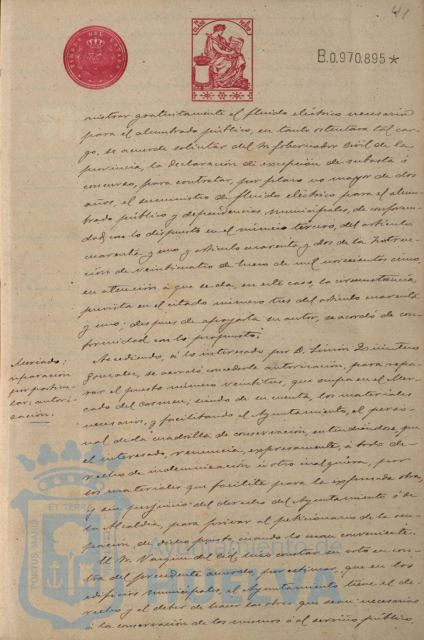 41
TIMBRE DEL ESTADO
B.0.970.895*
nistrar gratuitamente el fluido eléctrico necesario
para el alumbrado público, en tanto ostentara tal car-
go, se acuerde solicitar del Sr. Gobernador Civil de la
provincia, la declaración de excepción de subasta ó
concurso, para contratar, por plazo no mayor de dos
años, el suministro de fluido eléctrico para el alum-
brado público y dependencias Municipales, de conformi-
dad con lo dispuesto en el número tercero, del artículo
cuarenta y uno y artículo cuarenta y dos de la Instruc-
ción de veinticuatro de Enero de mil novecientos cinco,
en atención á que se da, en este caso, la circunstancia,
prevista en el citado número tres del artículo cuarenta
y uno; después de apoyarla su autor, se acordó de con-
formidad con lo propuesto.
Mercado:
reparación
por particu-
lar; autori-
zación.
Accediendo, á lo interesado por D. Simón Quintero
González, se acordó concederle autorización, para repa-
rar el puesto número veintitres, que ocupa en el Mer-
cado del Carmen, siendo de su cuenta, los materiales
necesarios, y facilitando el Ayuntamiento, el perso-
nal de la cuadrilla de conservación, entendiéndose, que
el interesado, renuncia, expresamente, á todo de-
recho de indemnización ú otro cualquiera, por
los materiales que facilite para la expresada obra,
y sin perjuicio del derecho del Ayuntamiento ó de
la Alcaldía, para privar al peticionario de la ocu-
pación, de dicho puesto cuando lo crean conveniente.
El Sr. Vazquez del Cid, hizo constar su voto en con-
tra del precedente acuerdo, por estimar, que en los
edificios municipales, el Ayuntamiento tiene el de-
recho y el deber de hacer las obras que sean necesarias
á la conservación de los mismos ó al servicio público,
PORTUS MARIS ET TERRAE
Ayuntamiento de
HUELVA